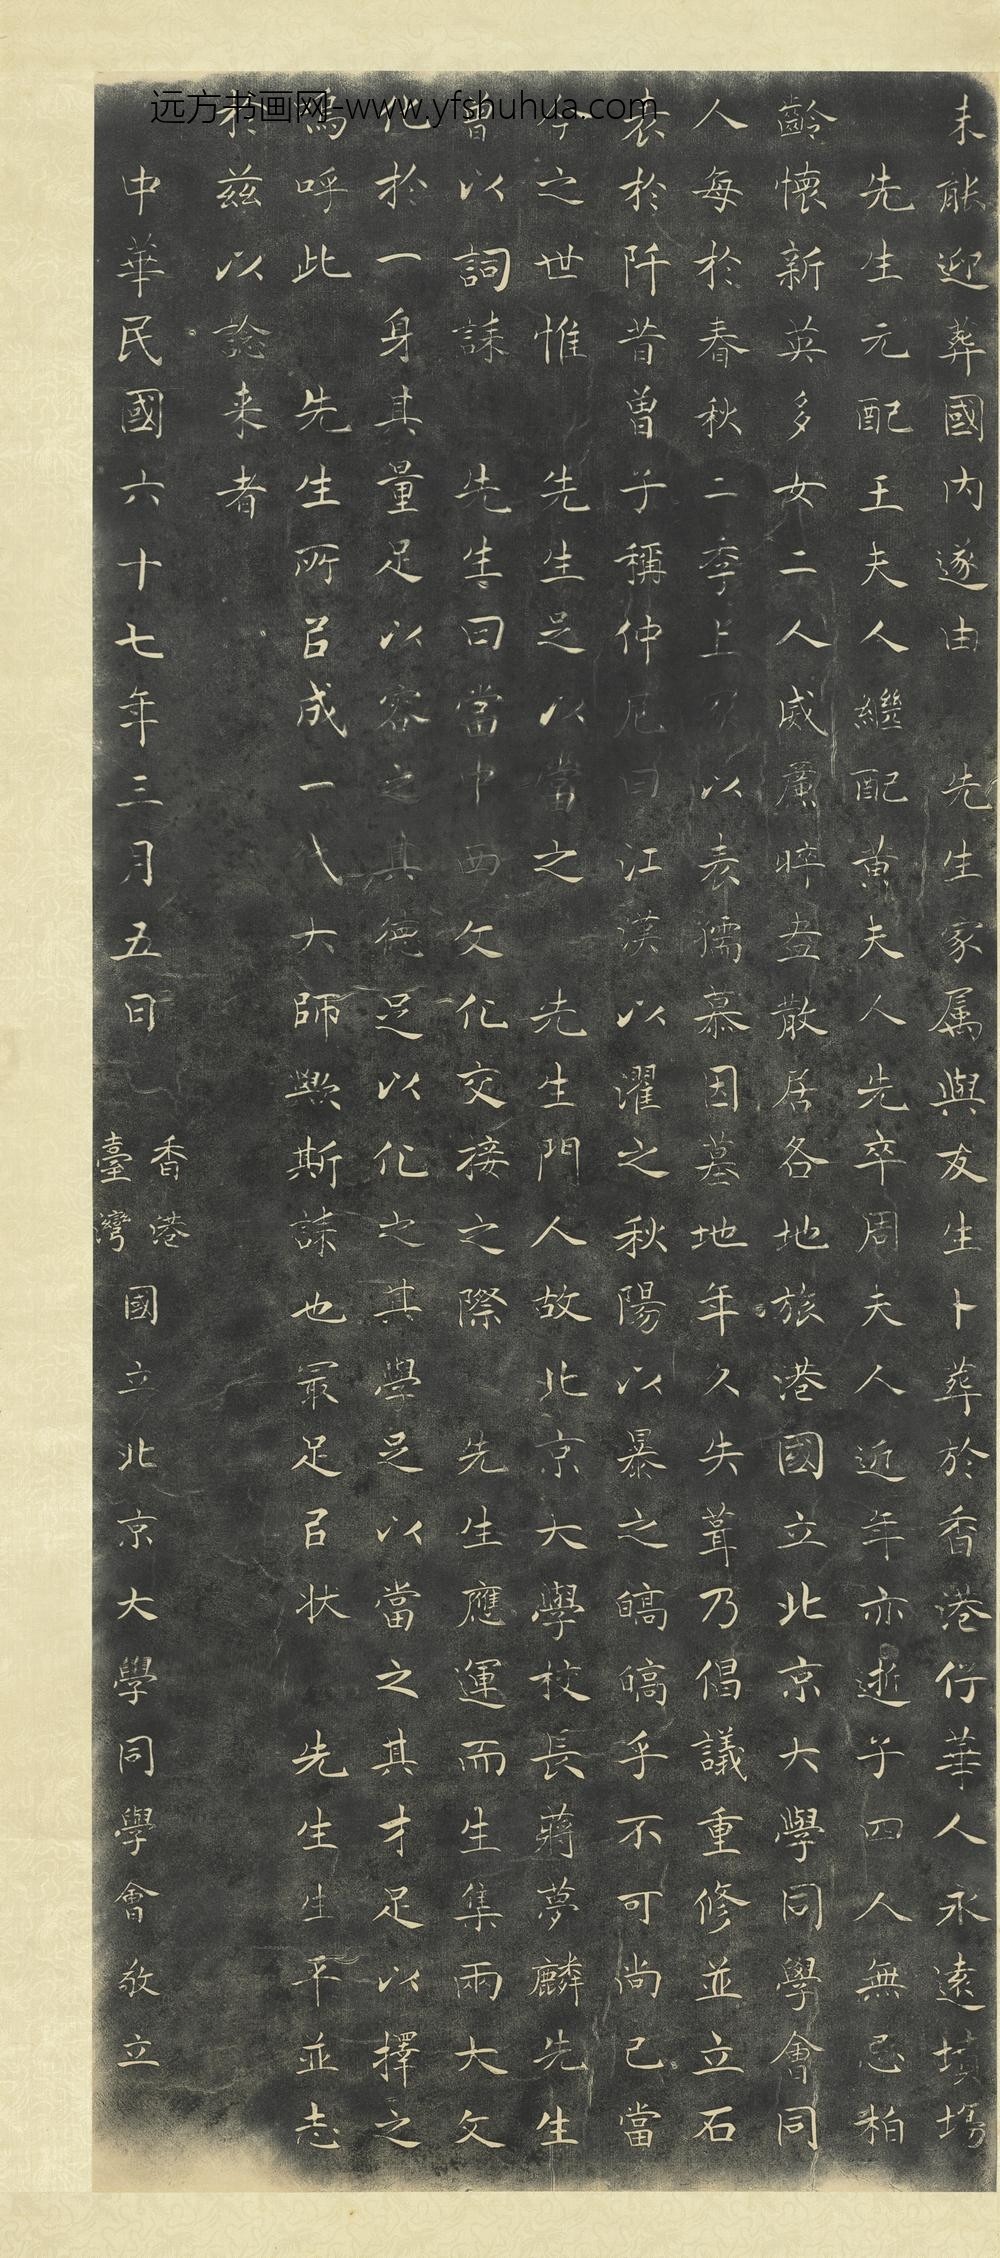 远方书画网-www.yfshuhua.com
未能迎葬國内遂由　先生家属與友生卜葬於香港仔華人永遠墳塲
先生元配王夫人繼配黄夫人先卒周夫人近年亦逝子四人無忌柏
齡懷新英多女二人威厲晬盎散居各地旅港國立北京大學同學會同
人每於春秋二季上以表孺慕因墓地年久失葺乃倡議重修並立石
表於阡昔曾子稱仲尼曰江漢以濯之秋陽以暴之皜皜乎不可尚已當
今之世惟　先生足以當之　先生門人故北京大學校長蔣夢麟先生
曾以詞誄　先生曰當中西文化交接之際　先生應運而生集兩大文
化於一身其量足以容之其德足以化之其學足以當之其才足以擇之
嗚呼此　先生所㠯成一代大師歟斯誄也㝡足㠯状　先生生平並志
於兹以諗来者
中華民國六十七年三月五日　香港臺灣國立北京大學同學會敬立